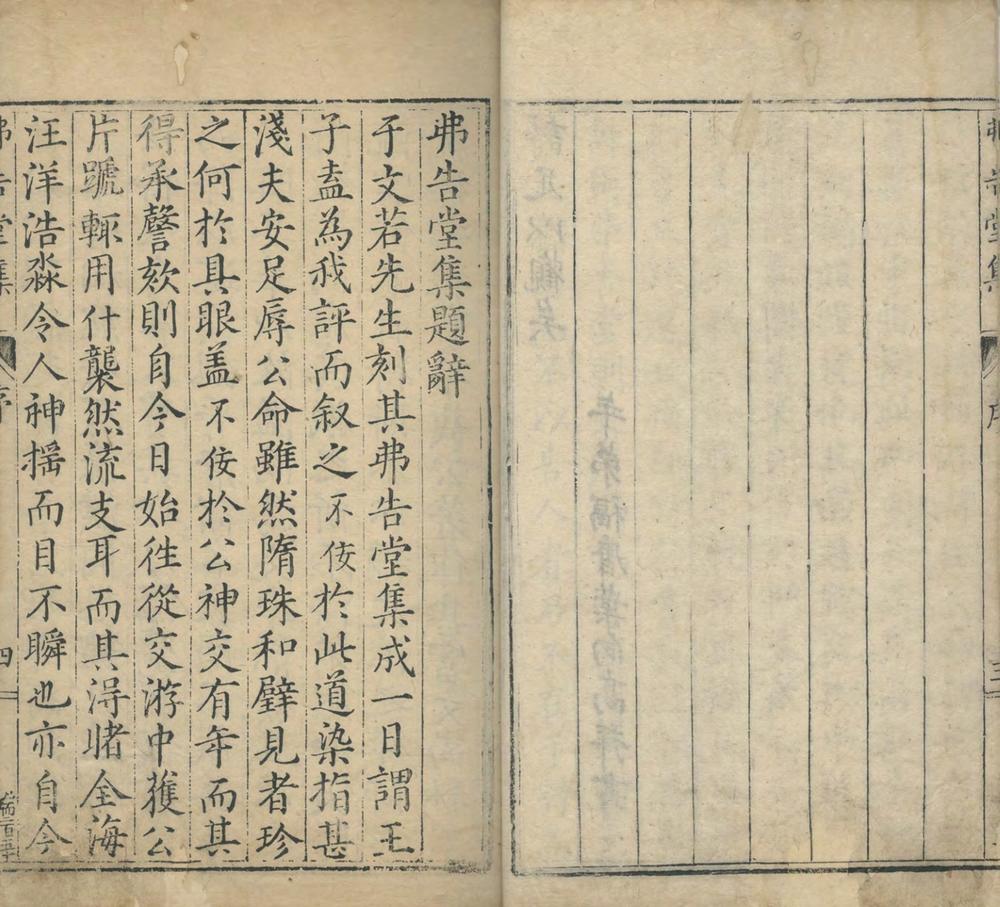 弗告堂集
序
三
弗告堂集題辭
于文若先生刻其弗告堂集成一日謂王
子盍為我評而叙之不佞於此道染指甚
淺夫安足辱公命雖然隋珠和璧見者珍
之何於具眼盖不佞於公神交有年而其
得承謦欬則自今日始徃從交游中獲公
片號輒用什襲然流支耳而其淂睹全海
汪洋浩淼令人神揺而目不瞬也亦自今
弗告堂集
序
四